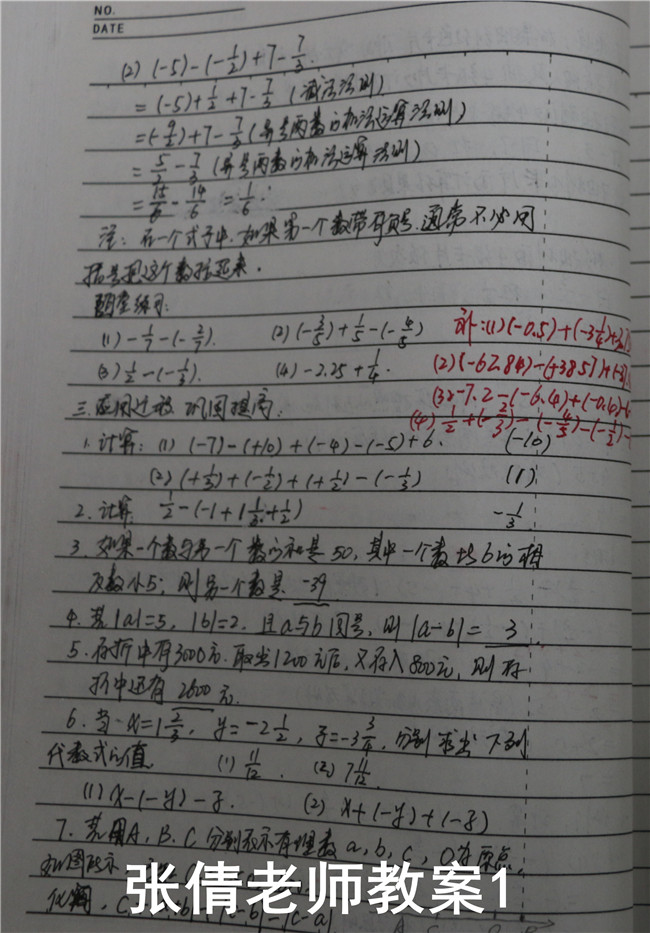 NO.
DATE
(2) (-5)-(-1/2)+7-7/3.
=(-5)+1/2+7-7/3 (减法法则)
=(-9/2)+7-7/3 (异号两数的加法运算法则)
=5/2-7/3 (异号两数的加法运算法则)
=15/6-14/6=1/6.
注：在一个式子中,如果第一个数带有负号,通常不必用
括号把这个数括起来.
随堂练习:
(1) -1/7-(-2/7). (2) (-3/5)+1/5-(-4/5) 补:(1)(-0.5)+(-3 1/4)+
(3) 1/2-(-1/3). (4) -2.25+1/4. (2)(-62.84)-(+38.5)+
三.应用迁移 巩固提高. (3) -7.2-(-6.4)+(-0.6)-
(4) 1/2+(-2/3)-(-4/5)-(-1/2)-
1.计算: (1) (-7)-(+10)+(-4)-(-5)+6. (-10)
(2) (+1/3)+(-1/2)+(+1/2)-(-1/3) (1)
2.计算: 1/2-(-1+1 1/3+1/2) -1/3
3.如果一个数与另一个数的和是50,其中一个数比6的相
反数小5;则另一个数是 -39
4.若|a|=5, |b|=2. 且a与b同号,则|a-b|= 3.
5.存折中有3000元.取出1200元后,又存入800元,则存
折中还有 2600 元.
6.当x=1 2/3, y=-2 1/2, z=-3 3/4,分别求出下列
代数式的值 (1) 11/12. (2) 7 11/12.
(1) x-(-y)-z. (2) x+(-y)+(-z)
7.若用A.B.C分别表示有理数a,b,c, O为原点.
如图所示.
化简.
张倩老师教案1